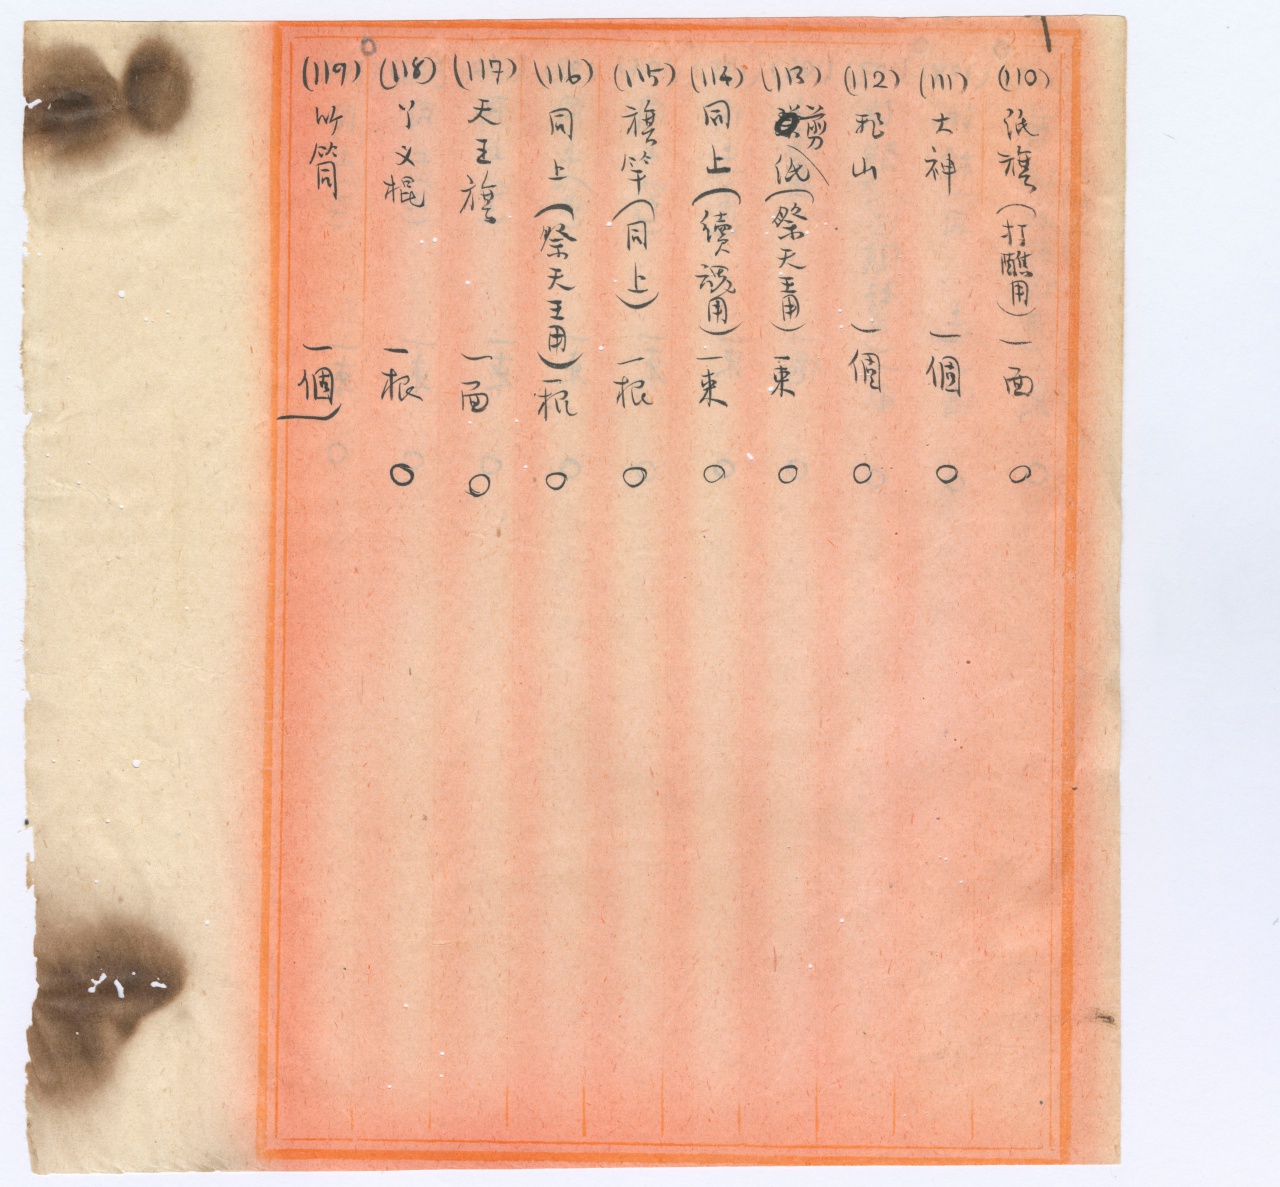 (110) 紙旗(打醮用)一面 ○
(111) 大神 一個 ○
(112) 山 一個 ○
(113) 剪紙(祭天王用)一束 ○
(114) 同上(續魂用)一束 ○
(115) 旗竿(同上)一根 ○
(116) 同上(祭天王用)一根 ○
(117) 天王旗 一面 ○
(118) 丫义棍 一根 ○
(119) 竹筒 一個